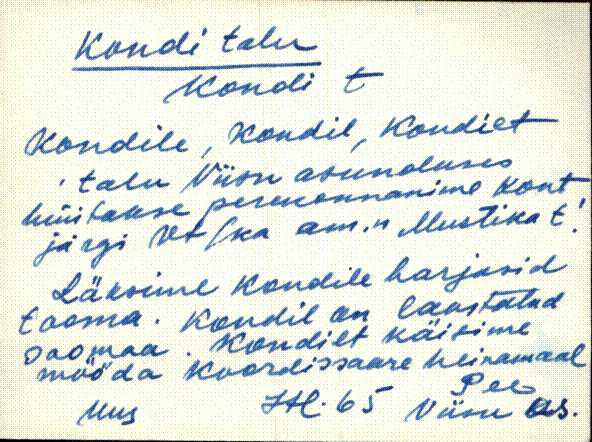 Kondi talu
Kondi t
Kondile, Kondil, Kondilt
talu Viisu asunduses
hüütakse perekonnanime Kont
järgi Vt ka am.n Mustika t!
Läksime Kondile harjasid
tooma. Kondil on laastatud
soomaa. Kondilt käisime
mööda Koordissaare heinamaal
Pee
Mus JH. 65 Viisu as.